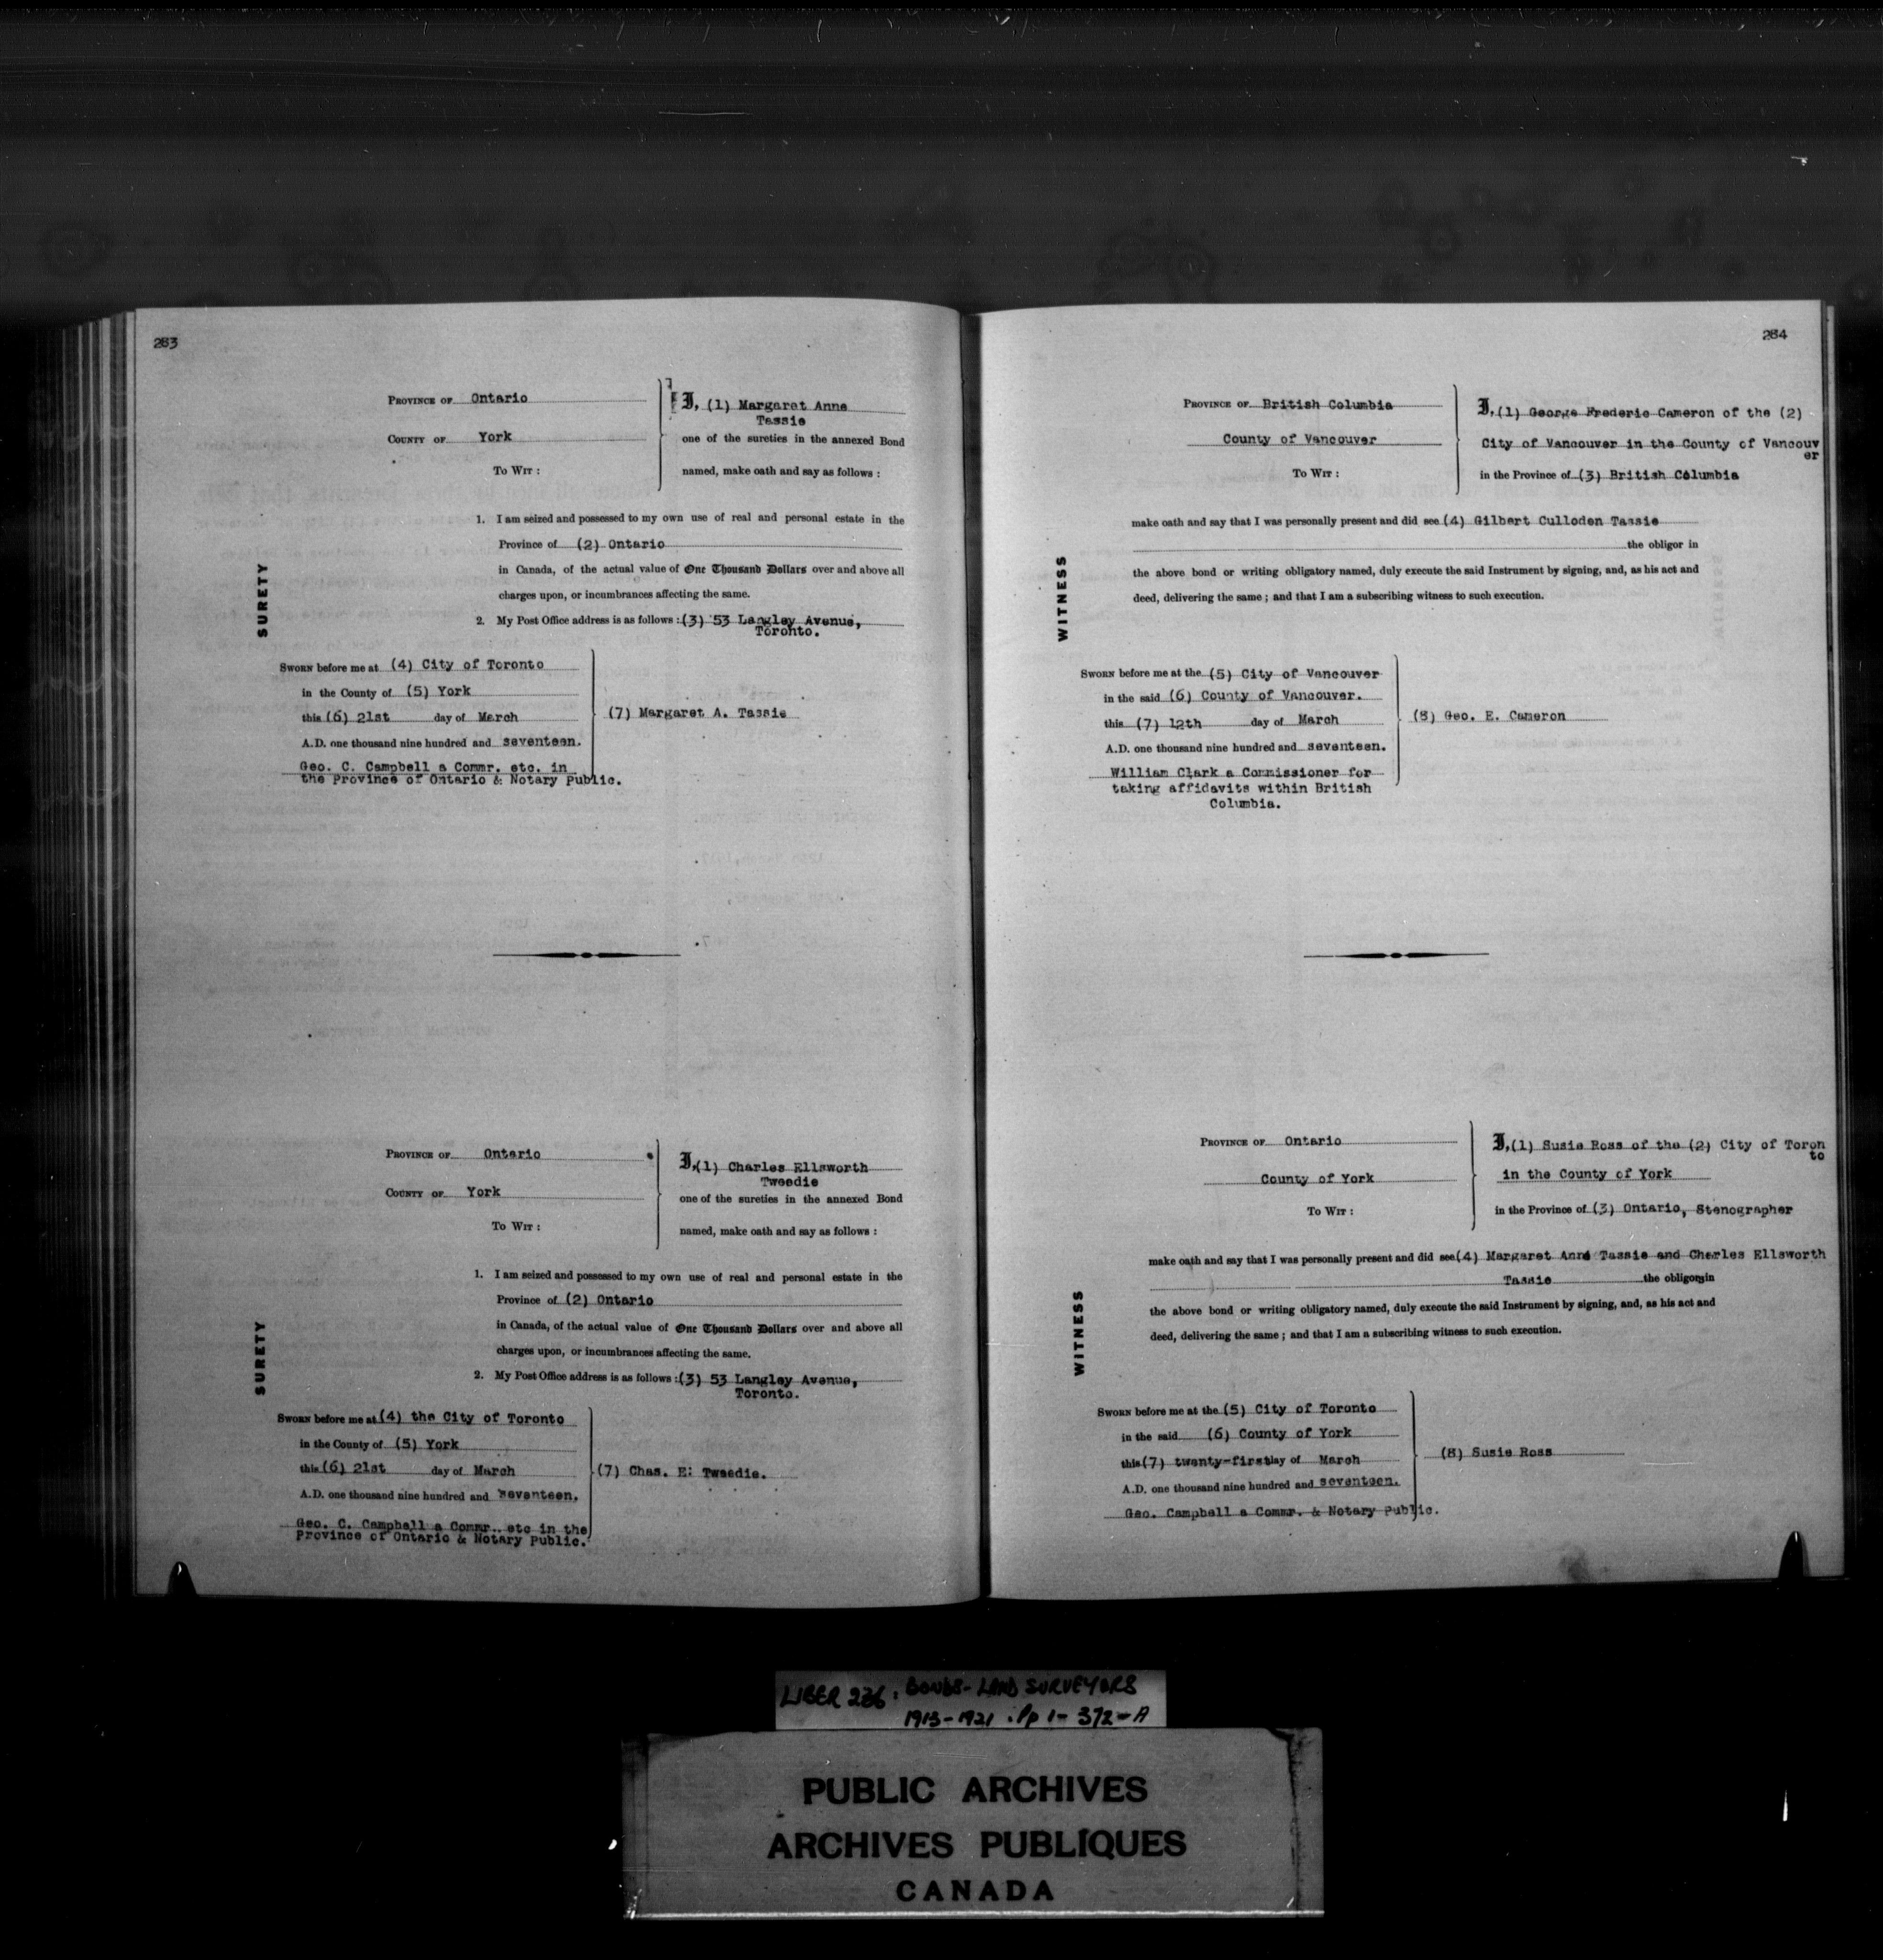 283
PROVINCE OF Ontario
COUNTY OF York
TO WIT :
I, (1) Margaret Anne
Tassie
one of the sureties in the annexed Bond
named, make oath and say as follows :
SURETY
1. I am seized and possessed to my own use of real and personal estate in the
Province of (2) Ontario
in Canada, of the actual value of One Thousand Dollars over and above all
charges upon, or incumbrances affecting the same.
2. My Post Office address is as follows : (3) 53 Langley Avenue,
Toronto.
SWORN before me at (4) City of Toronto
in the County of (5) York
this (6) 21st day of March
A.D. one thousand nine hundred and seventeen.
Geo. C. Campbell a Commr. etc. in
the Province of Ontario & Notary Public.
(7) Margaret A. Tassie
PROVINCE OF Ontario
COUNTY OF York
TO WIT :
I, (1) Charles Ellsworth
Tweedie
one of the sureties in the annexed Bond
named, make oath and say as follows :
SURETY
1. I am seized and possessed to my own use of real and personal estate in the
Province of (2) Ontario
in Canada, of the actual value of One Thousand Dollars over and above all
charges upon, or incumbrances affecting the same.
2. My Post Office address is as follows : (3) 53 Langley Avenue,
Toronto.
SWORN before me at (4) the City of Toronto
in the County of (5) York
this (6) 21st day of March
A.D. one thousand nine hundred and seventeen.
Geo. C. Campbell a Commr. etc in the
Province of Ontario & Notary Public.
(7) Chas. E. Tweedie.
284
PROVINCE OF British Columbia
County of Vancouver
TO WIT :
I, (1) George Frederic Cameron of the (2)
City of Vancouver in the County of Vancouv
er
in the Province of (3) British Columbia
WITNESS
make oath and say that I was personally present and did see (4) Gilbert Culloden Tassie
the obligor in
the above bond or writing obligatory named, duly execute the said Instrument by signing, and, as his act and
deed, delivering the same ; and that I am a subscribing witness to such execution.
SWORN before me at the (5) City of Vancouver
in the said (6) County of Vancouver.
this (7) 12th day of March
A.D. one thousand nine hundred and seventeen.
William Clark a Commissioner for
taking affidavits within British
Columbia.
(8) Geo. E. Cameron
PROVINCE OF Ontario
County of York
TO WIT :
I, (1) Susie Ross of the (2) City of Toron
to
in the County of York
in the Province of (3) Ontario, Stenographer
WITNESS
make oath and say that I was personally present and did see (4) Margaret Anne Tassie and Charles Ellsworth
Tassie the obligors in
the above bond or writing obligatory named, duly execute the said Instrument by signing, and, as his act and
deed, delivering the same ; and that I am a subscribing witness to such execution.
SWORN before me at the (5) City of Toronto
in the said (6) County of York
this (7) twenty-first day of March
A.D. one thousand nine hundred and seventeen.
Geo. Campbell a Commr. & Notary Public.
(8) Susie Ross
LIBER 236 : BONDS - LAND SURVEYORS
1913-1921 . Pp 1- 372-A
PUBLIC ARCHIVES
ARCHIVES PUBLIQUES
CANADA